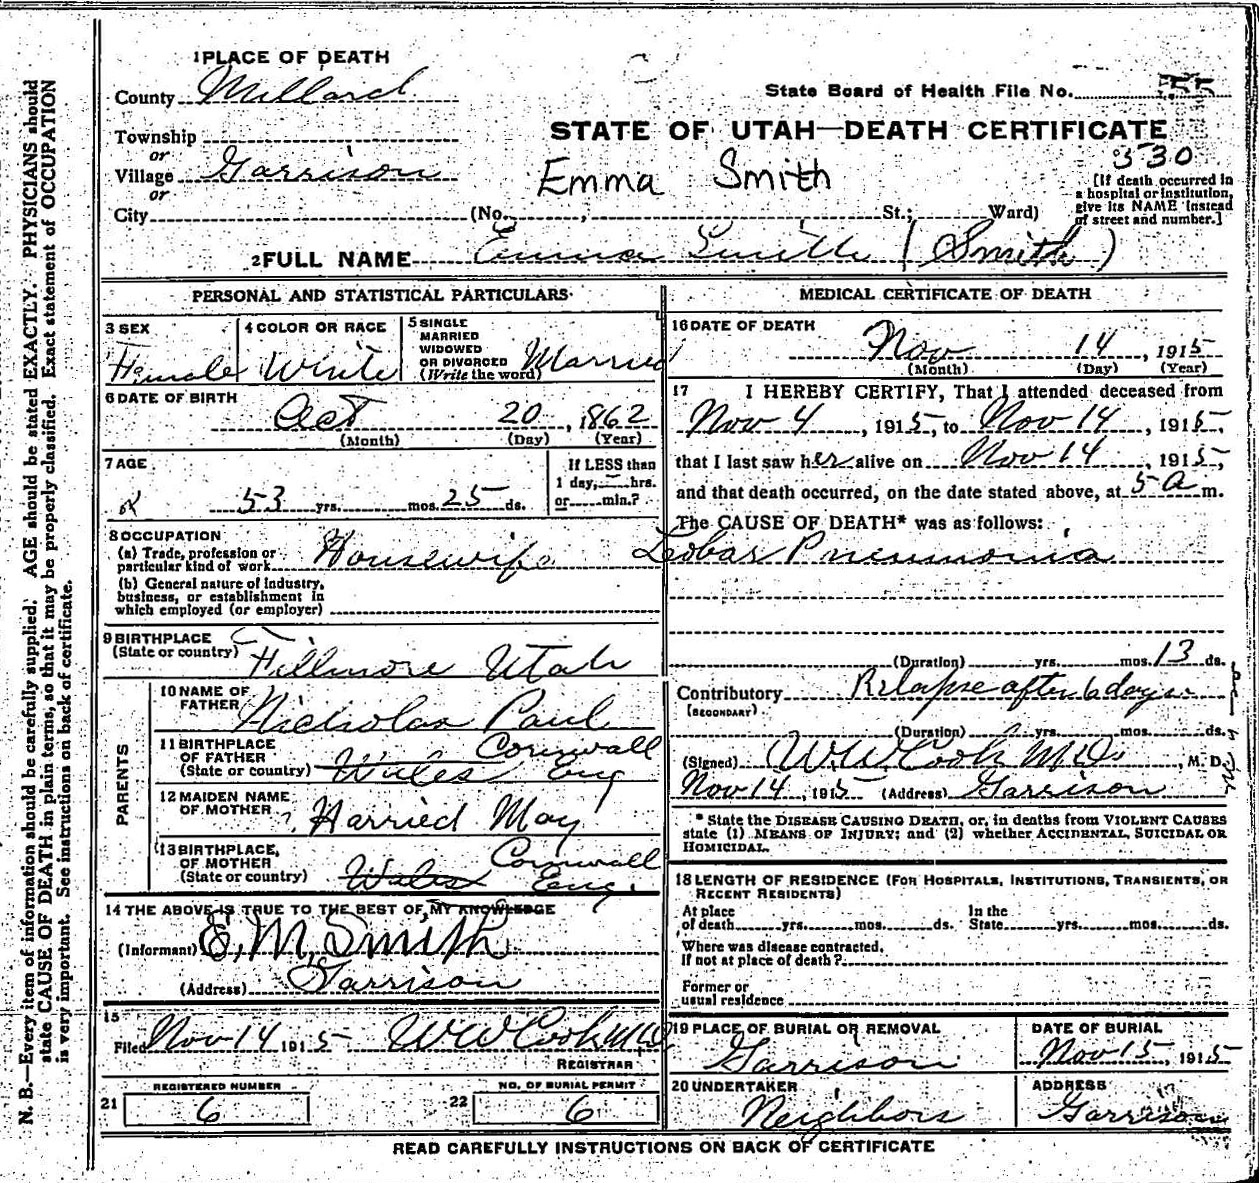 1 PLACE OF DEATH
County Millard
State Board of Health File No. 55
Township
or
Village Garrison
or
City
STATE OF UTAH—DEATH CERTIFICATE
530
Emma Smith
[If death occurred in
a hospital or institution,
give its NAME instead
of street and number.]
(No. , St.; Ward)
2 FULL NAME Emma Smith (Smith)
PERSONAL AND STATISTICAL PARTICULARS
3 SEX
Female
4 COLOR OR RACE
White
5 SINGLE
MARRIED
WIDOWED
OR DIVORCED
(Write the word) Married
6 DATE OF BIRTH
Oct 20, 1862
(Month) (Day) (Year)
7 AGE
53 yrs. mos. 25 ds.
If LESS than
1 day, hrs.
or min.?
8 OCCUPATION
(a) Trade, profession or
particular kind of work Housewife
(b) General nature of industry,
business, or establishment in
which employed (or employer)
9 BIRTHPLACE
(State or country)
Fillmore Utah
PARENTS
10 NAME OF
FATHER
Nicholas Paul
11 BIRTHPLACE
OF FATHER
(State or country)
Cornwall
Wales Eng
12 MAIDEN NAME
OF MOTHER
Harried May
13 BIRTHPLACE
OF MOTHER
(State or country)
Cornwall
Wales Eng.
14 THE ABOVE IS TRUE TO THE BEST OF MY KNOWLEDGE
(Informant) E. M. Smith
(Address) Garrison
15
Filed Nov 14 1915 WW Cook MD
REGISTRAR
REGISTERED NUMBER
21 6
NO. OF BURIAL PERMIT
22 6
MEDICAL CERTIFICATE OF DEATH
16 DATE OF DEATH
Nov 14, 1915
(Month) (Day) (Year)
17 I HEREBY CERTIFY, That I attended deceased from
Nov 4, 1915, to Nov 14, 1915,
that I last saw her alive on Nov 14, 1915,
and that death occurred, on the date stated above, at 5 a m.
The CAUSE OF DEATH* was as follows:
Lobar Pneumonia
(Duration) yrs. mos. 13 ds.
Contributory Relapse after 6 days
(SECONDARY)
(Duration) yrs. mos. ds.
(Signed) WW Cook MD, M. D.
Nov 14, 1915 (Address) Garrison
* State the DISEASE CAUSING DEATH, or, in deaths from VIOLENT CAUSES
state (1) MEANS OF INJURY; and (2) whether ACCIDENTAL, SUICIDAL OR
HOMICIDAL.
18 LENGTH OF RESIDENCE (FOR HOSPITALS, INSTITUTIONS, TRANSIENTS, OR
RECENT RESIDENTS)
At place
of death yrs. mos. ds.
In the
State yrs. mos. ds.
Where was disease contracted,
if not at place of death?
Former or
usual residence
19 PLACE OF BURIAL OR REMOVAL
Garrison
DATE OF BURIAL
Nov 15, 1915
20 UNDERTAKER
Neighbors
ADDRESS
Garrison
READ CAREFULLY INSTRUCTIONS ON BACK OF CERTIFICATE
N. B.—Every item of information should be carefully supplied. AGE should be stated EXACTLY. PHYSICIANS should
state CAUSE OF DEATH in plain terms, so that it may be properly classified. Exact statement of OCCUPATION
is very important. See instructions on back of certificate.